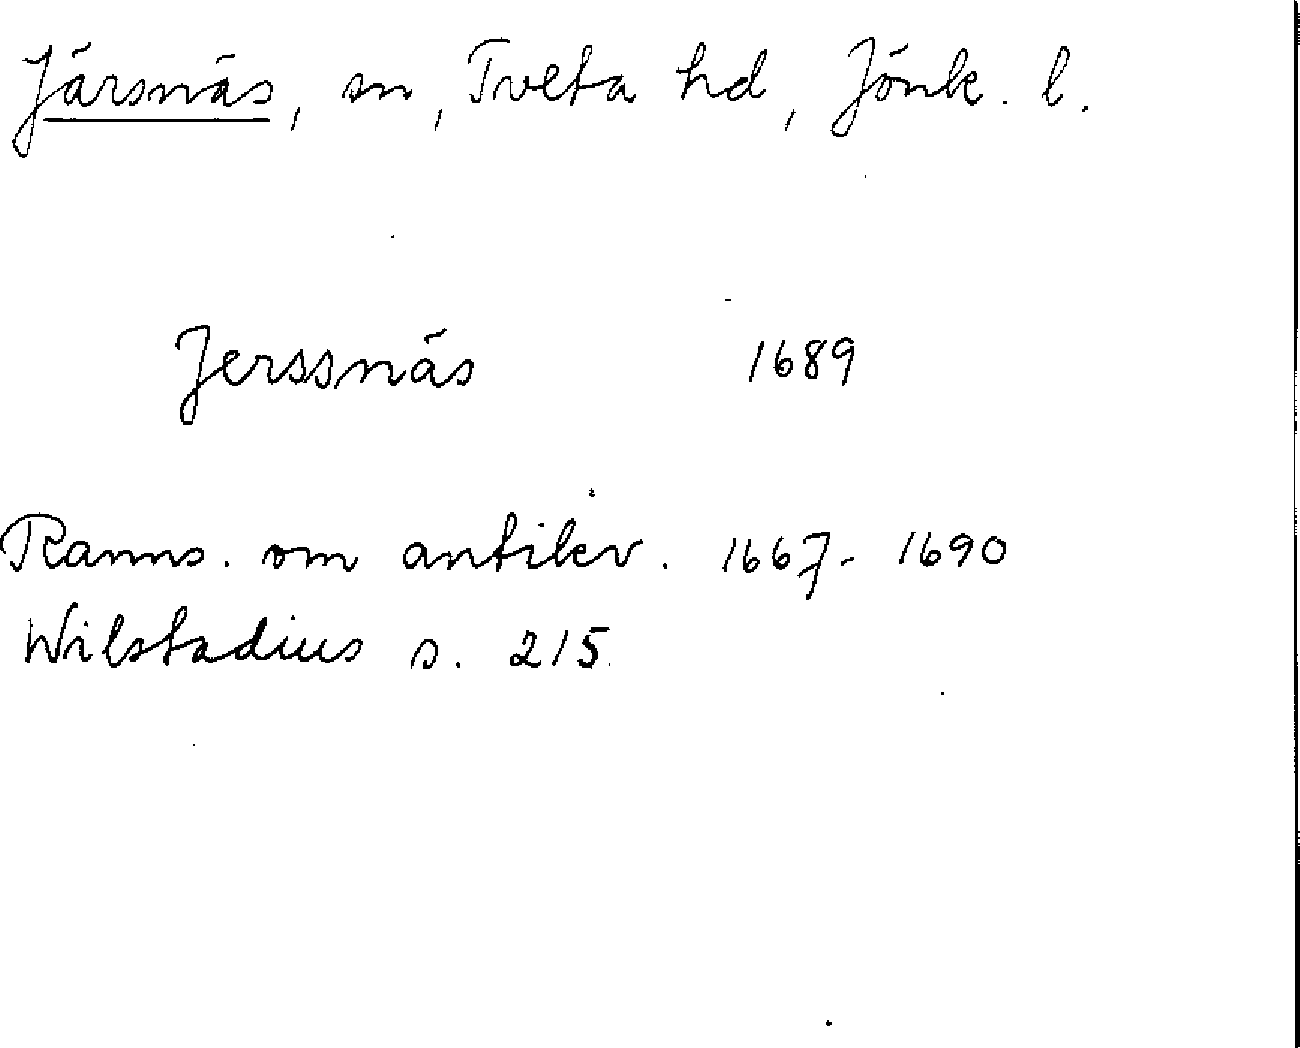 Järsnäs, sn, Tveta hd, Jönk. l.
Jerssnäs 1689
Ranns. om antikv. 1667-1690
Wilstadius s. 215.